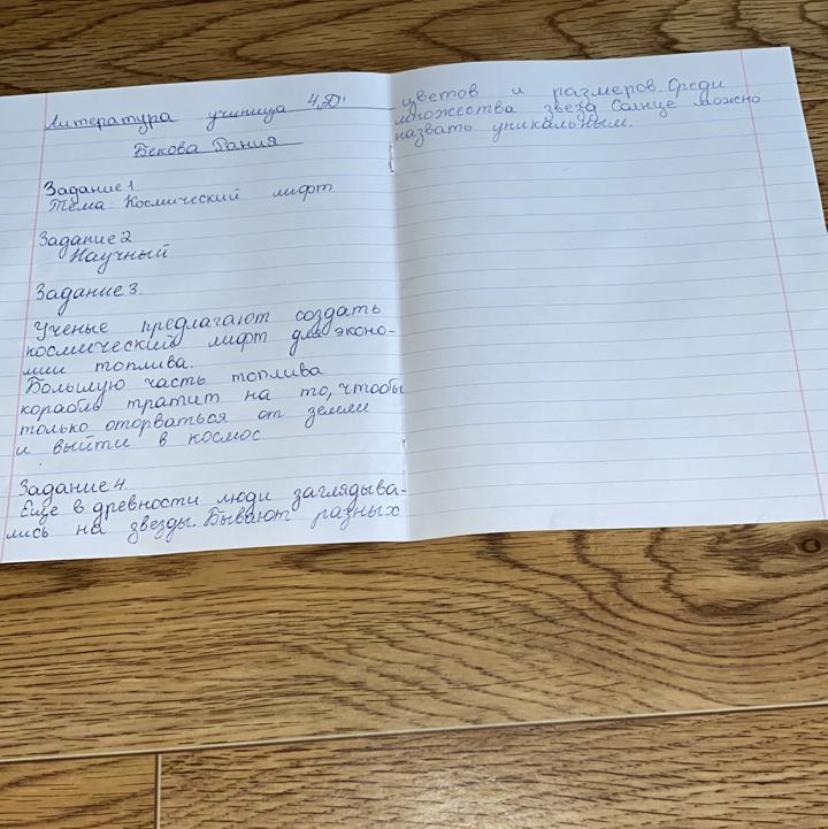 Литература ученица 4 „Д"
Бекова Рания
Задание 1.
Тема Космический лифт
Задание 2
Научный
Задание 3.
Ученые предлагают создать
космический лифт для эконо-
мии топлива.
Большую часть топлива
корабль тратит на то, чтобы
только оторваться от земли
и выйти в космос
Задание 4.
Еще в древности люди заглядыва-
лись на звезды. Бывают разных
цветов и размеров. Среди
множества звезд Солнце можно
назвать уникальным.